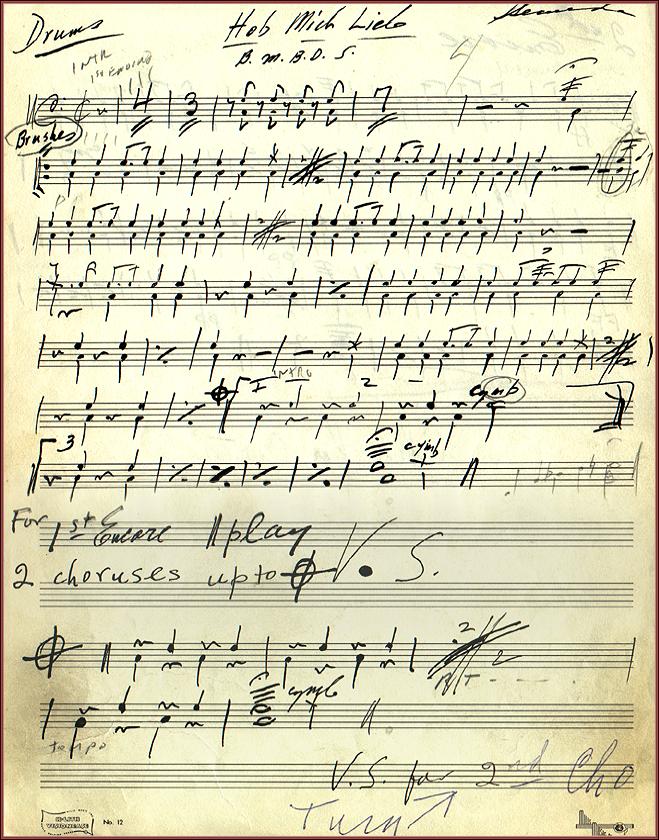 Drums
Hob Mich Lieb
B.M.B.D.S.
INTR
1ST ENDING
4 3 7
Brushes
2
2
I INTRO 2 cymb
3 cymb
For 1st Encore play
2 choruses up to V.S.
2
2
cymb
tempo
V.S. for 2nd Cho
Turn
No. 12